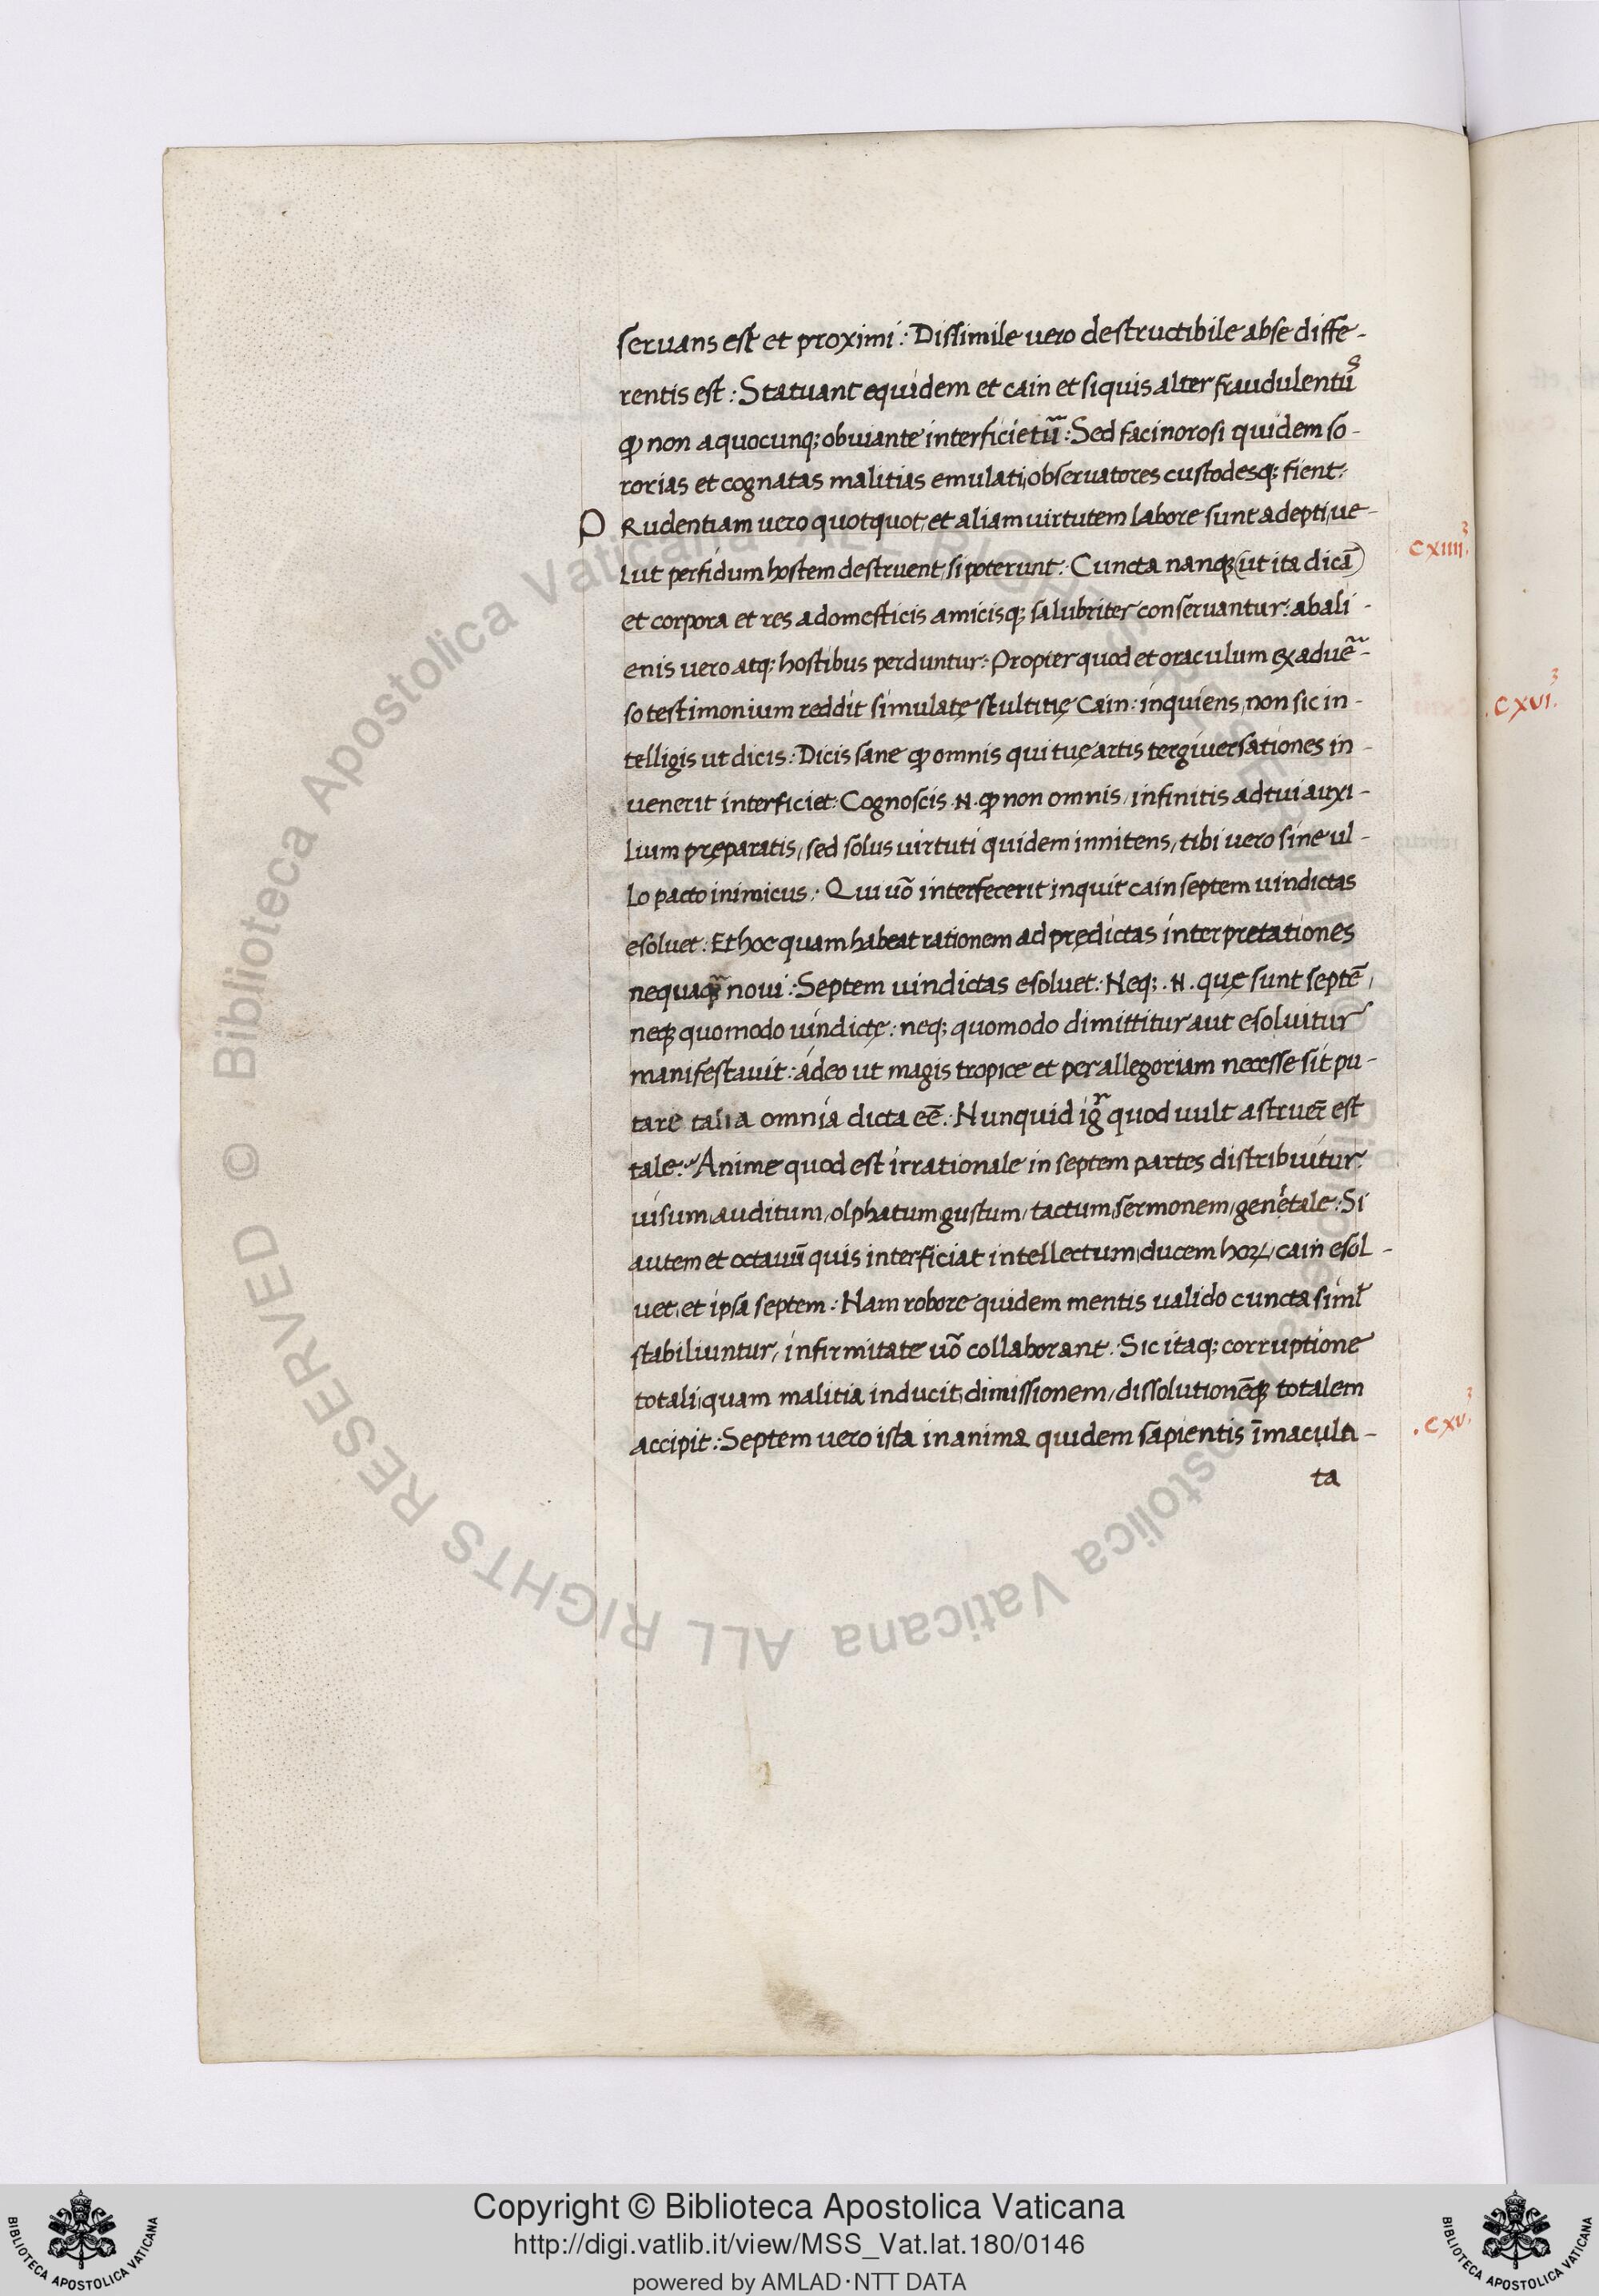 seruans est et proximi: Dissimile vero destructibile abse diffe-
rentis est: Statuant equidem et cain et siquis alter fraudulentu᷒
ꝙ non aquocunq; obuiante interficietu᷒: Sed facinorosi quidem so-
rorias et cognatas malitias emulati, obseruatores custodesq; fient:
PRudentiam vero quotquot, et aliam virtutem labore sunt adepti, ue-
cxiiii.
Lut perfidum hostem destruent, si poterunt: Cuncta nanq; (ut ita dicā)
et corpora et res adomesticis amicisq; salubriter conseruantur: abali-
enis uero atq; hostibus perduntur: Propter quod et oraculum ex aduẽ-
so testimonium reddit simulatę stultitię Cain: inquiens, non sic in-
.cxvi.
telligis ut dicis: Dicis sane ꝙ omnis qui tuę artis tergiuersationes in-
uenerit interficiet: Cognoscis .N. ꝙ non omnis, infinitis ad tui auxi-
lium pręparatis, sed solus uirtuti quidem innitens, tibi uero sine ul-
Lo pacto inimicus: Qui uō interfecerit inquit cain septem uindictas
esoluet: Et hoc quam habeat rationem ad prędictas interpretationes
nequaq̃ noui: Septem uindictas esoluet: Neq; .N. quę sunt septē,
neq; quomodo uindictę: neq; quomodo dimittitur aut esoluitur
manifestauit: ádeo ut magis tropice et per allegoriam necesse sit pu-
tare talia omnia dicta eē: Nunquid igr̃ quod uult astruer̃ est
tale: Anime quod est irrationale in septem partes distribuitur:
uisum, auditum, olphatum, gustum, tactum, sermonem, genetale: Si
autem et octauū quis interficiat intellectum, ducem hoꝝ, cain esol-
uet, et ipsa septem: Nam robore quidem mentis ualido cuncta siml̃
stabiliuntur, infirmitate uō collaborant: Sic itaq; corruptione
totali, quam malitia inducit, dimissionem, dissolutionēq; totalem
accipit: Septem uero ista in anima quidem sapientis īmacula-
.cxv.
ta
Copyright © Biblioteca Apostolica Vaticana
http://digi.vatlib.it/view/MSS_Vat.lat.180/0146
powered by AMLAD·NTT DATA
BIBLIOTECA APOSTOLICA VATICANA
BIBLIOTECA APOSTOLICA VATICANA